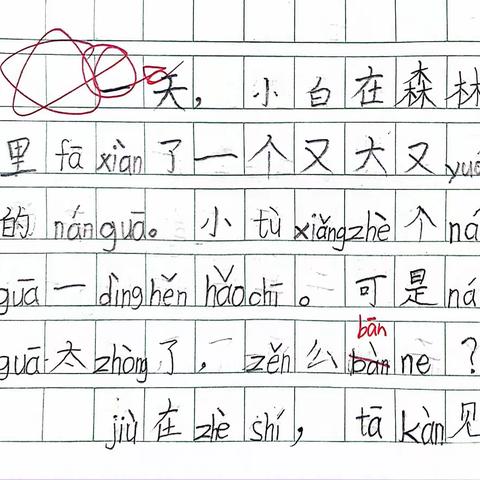 一天，小白在森林
里fā xiàn了一个又大又yuá
的nán guā。小tù xiǎng zhè个ná
guā一dìng hěn hǎo chī。可是ná
bān
guā太zhòng了，zěn么bàn nè？
jiù在zhè shí，tā kàn见